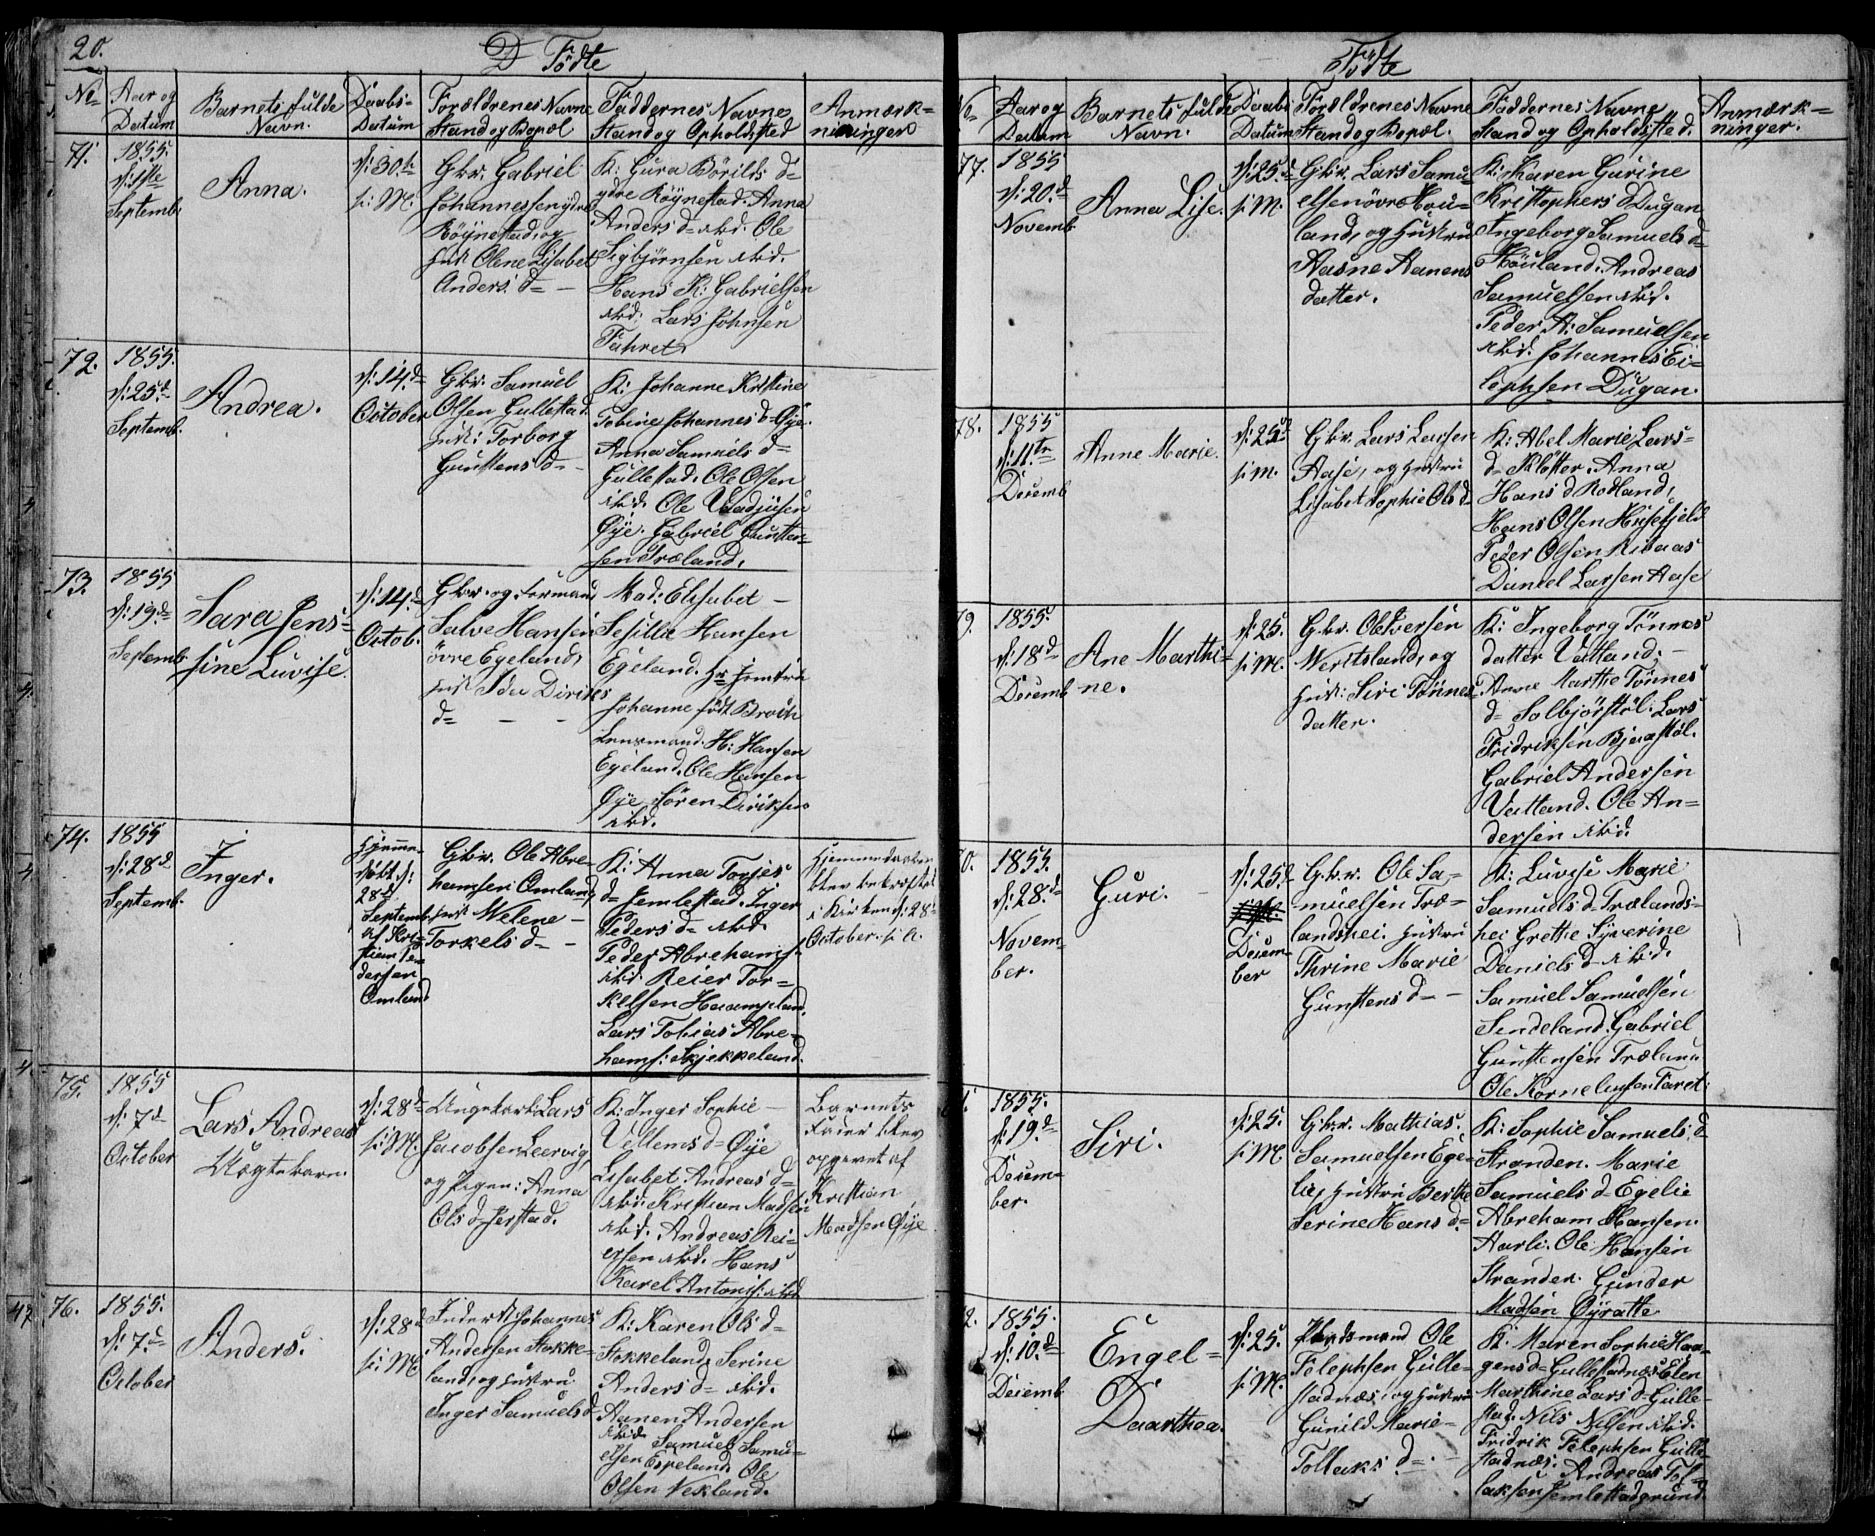 20.
D Födte
No
Aar og
Datum
Barnets fulde
Navn.
Daabs-
Datum
Forældrenes Navne
Stand og Bopæl
Faddernes Navne
Stand og Opholdssted
Anmærk=
ninger
71.
1855.
d: 1ste
Septemb.
Anna.
d: 30te
s: M.
Gbr. Gabriel
Johannessen ydre
Röynestad, og
Hust. Olene Lisabet
Anders d= -
K: Gura Börilds d=
ydre Röynestad. Anna
Anders d= ibid. Ole
Sigbjörnsen ibid.
Hans K: Gabrielsen
ibid. Lars Johnsen
Fahret
72.
1855.
d: 25d
Septemb.
Andrea.
d: 14.d
October
Gbr. Samuel
Olsen Gullestad.
Hust: Torborg
Gunstens d= -
K: Johanne Kristine
Tobine Johannes d= Öje.
Anna Samuels d=
Gullestad. Ole Olsen
ibid. Ole Vaadjusen
Öje. Gabriel Gunsten-
sen Træland.
73.
1855
d: 19.d
Septemb
Sara Jens=
sine Luvise.
d: 14.d
Octob.
Gbr. og Formand
Salve Hansen
övre Egeland,
Hust Ida Diriks
d= - -
Mad: Elisabet -
Sesilla Hansen
Egeland. Hr
Johanne födt Broch
Lensmand. H: Hansen
Egeland. Ole Hansen
Öje. Sören Diriksen
ibid.
74.
1855
d: 28d
Septemb.
Inger.
Hjemme-
döbt d:
28d
Septemb.
af Kri=
stian Pe-
dersen
Omland
Gbr. Ole Abre-
hamsen Omland,
Hust Welene -
Torkels d= -
K: Anna Torjes
d= Jemlestad. Inger
Peders d= ibid.
Peder Abrehams.
ibid. Reier Tor=
kelsen Haampland.
Lars Tobias Abre-
hams: Skjekkeland.
Hjemmedaaben
blev bekræftet
i Kirken d: 28
October. s: A.
75.
1855
d: 7d
October
Lars Andreas
Uægte barn.
d: 28d
s: M.
Ungekarl Lars
Jacobsen Leervig,
og Pigen: Anna
Ols d= Jerstad.
K: Inger Sophie -
Vellems d= Öje
Lisabet Andreas d=
ibid. Kristian Madsen
ibid. Andreas Rei-
ersen ibid. Hans
Karel Antons: ibid
Barnets
Fader blev
opgevet af
Kristian
Madsen Öje
76.
1855.
d: 7.d
October
Anders.
d: 28d
s: M
Inderst Johannes
Andersen Stokke-
land, og Hustru
Inger Samuels d=
K: Karen Ols d=
Stokkeland. Serine
Anders d= ibid.
Aanen Andersen
ibid. Samuel Samu-
elsen Espeland. Ole
Olsen Vekland.
Födte
No
Aar og
Datum
Barnets fulde
Navn.
Daabs
Datum
Forældrenes Navne
Stand og Bopæl.
Faddernes Navne
Stand og Opholdssted.
Anmærk=
ninger.
77.
1855
d: 20.d
Novemb
Anna Lise.
d: 25.d
s: M.
Gbr. Lars Samu-
elsen övre Hou-
land, og Hustru
Aasne Aanens
datter.
K: Karen Gurine
Kristophers d Dugan
Ingeborg Samuels d=
Houland. Andreas
Samuelsen ibid.
Peder A: Samuelsen
ibid. Johannes Ei-
lephsen Dugan.
78.
1855
d: 11.te
Decemb
Anne Marie.
d: 25d
s: M.
Gbr. Lars Larsen
Aase, og Hustru
Lisabet Sophie Ols d.
K: Abel Marie Lars-
d= Klötter. Anna
Hans d Rodland,
Hans Olsen Husefjeld
Peder Olsen Risaas
Daniel Larsen Aase
79.
1855.
d: 18d
Decemb
Ane Marthi-
ne.
d: 25.
s: M.
Gbr. Ole Iversen
Weritsland, og
Hust: Siri Tönnes
datter.
K: Ingeborg Tönnes
datter Vatland. -
Anne Marthe Tönnes
d= Solbjörstöl. Lars
Fridriksen Bjaastöl.
Gabriel Andersen
Vatland. Ole An=
dersen ibid.
0.
1855.
d: 28.d
Novem-
ber.
Guri.
d: 25.d
Decem-
ber
Gbr. Ole Sa-
muelsen Træ-
landshei. Hustru
Thrine Marie
Gunstens d= -
K: Luvise Marie
Samuels d= Trælands-
hei Grethe Syverine
Daniels d= ibid.
Samuel Samuelsen
Sendeland. Gabriel
Gunstensen Træland
Ole Korneliusen Faret.
1.
1855.
d: 19.d
Decem-
ber.
Siri.
d: 25.
s: M
Gbr. Mathias.
Samuelsen Ege-
lie, Hustru Berthe
Serine Hans d=
K: Sophie Samuels d
Stranden. Marie
Samuels d= Egelie
Abreham Hansen.
Aarli. Ole Hansen
Stranden. Gunder
Madsen Öyratte
2.
1855.
d: 10.d
Decemb
Engel=
Daarthea.
d: 25.
s: M.
Plædsmand Ole
Felephsen Gulle-
stadnæs, og Hustru
Gunild Marie-
Tollaks d= -
K: Maren Sophie Haa-
gens d= Gullestadnæs. Elen
Marthine Lars d= Gulle-
stad. Nils Nilsen ibid.
Fridrik Felephsen Gulle-
stadnæs. Andreas Tol-
laksen Jemlestadgrund.